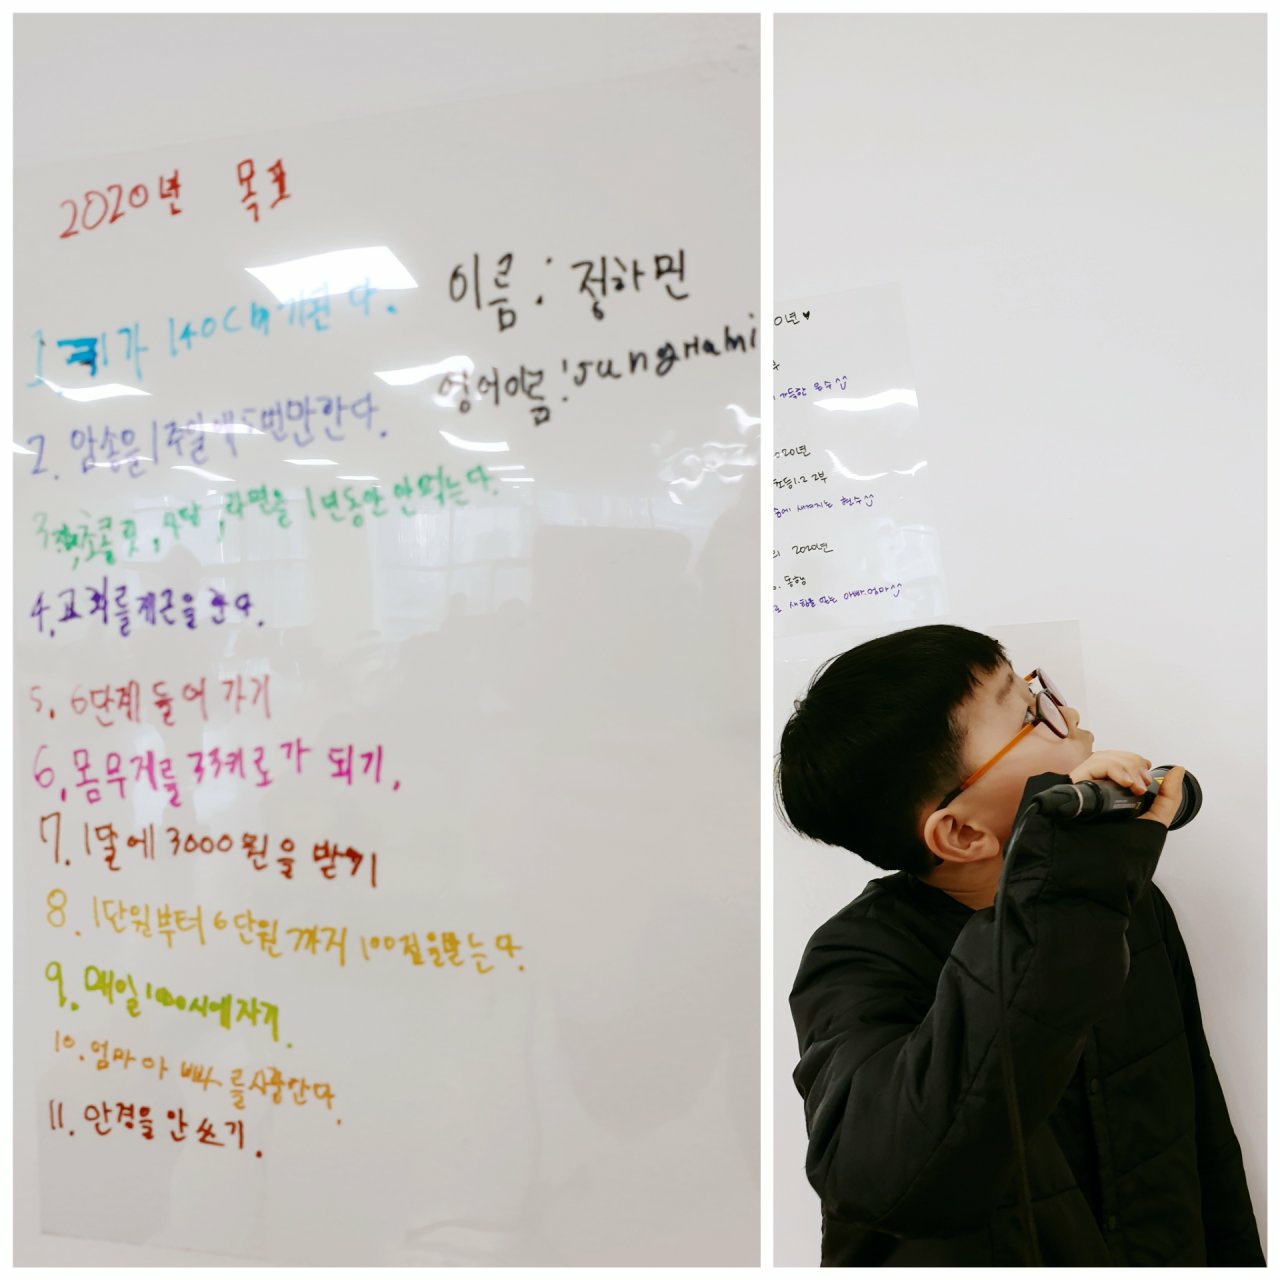 2020년 목표
이름: 정하민
영어이름: Jung Hami
1. 키가 140cm 가 된다.
2. 암송을 1주일에 5번만한다.
3. 초콜릿, 사탕, 라면을 1년동안 안 먹는다.
4. 교회를 개근을 한다.
5. 6단계 들어 가기
6. 몸무게를 33키로가 되기.
7. 1달에 3000원을 받기
8. 1단원부터 6단원 까지 100점을 맞는다.
9. 매일 10시에 자기.
10. 엄마 아빠를 사랑한다.
11. 안경을 안 쓰기.
0년♥
부
가득한 윤수^^
2020년
초등1.2 2부
현수^^
2020년
동행
아빠.엄마^^